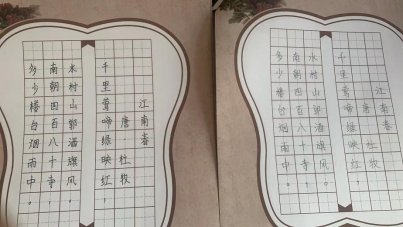 江南春
唐·杜牧
千里莺啼绿映红，
水村山郭酒旗风。
南朝四百八十寺，
多少楼台烟雨中。
江南春
唐·杜牧
千里莺啼绿映红，
水村山郭酒旗风。
南朝四百八十寺，
多少楼台烟雨中。